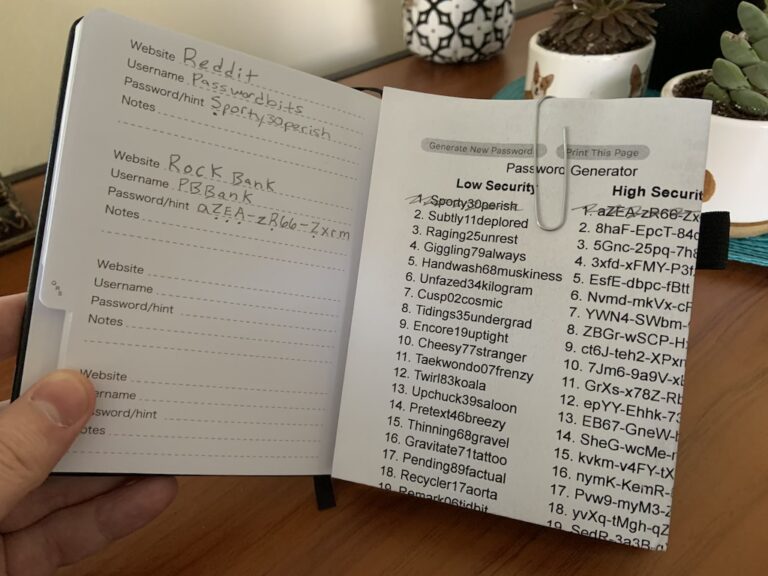 Website Reddit
Username Passwordbits
Password/hint Sporty30perish
Notes
Website Rock Bank
Username PBBank
Password/hint aZEA-zR66-Zxrm
Notes
Website
Username
Password/hint
Notes
Website
ername
ssword/hint
otes
Generate New Password
Print This Page
Password Generator
Low Security
1. Sporty30perish
2. Subtly11deplored
3. Raging25unrest
4. Giggling79always
5. Handwash68muskiness
6. Unfazed34kilogram
7. Cusp02cosmic
8. Tidings35undergrad
9. Encore19uptight
10. Cheesy77stranger
11. Taekwondo07frenzy
12. Twirl83koala
13. Upchuck39saloon
14. Pretext46breezy
15. Thinning68gravel
16. Gravitate71tattoo
17. Pending89factual
18. Recycler17aorta
19. Remark06tidbit
High Securit
1. aZEA-zR66-Zx
2. 8haF-EpcT-84c
3. 5Gnc-25pq-7h8
4. 3xfd-xFMY-P3f
5. EsfE-dbpc-fBtt
6. Nvmd-mkVx-cF
7. YWN4-SWbm-
8. ZBGr-wSCP-H
9. ct6J-teh2-XPxn
10. 7Jm6-9a9V-xL
11. GrXs-x78Z-Rb
12. epYY-Ehhk-73
13. EB67-GneW-
14. SheG-wcMe-
15. kvkm-v4FY-tX
16. nymK-KemR-
17. Pvw9-myM3-Z
18. yvXq-tMgh-qZ
19. SedR-3a3B-